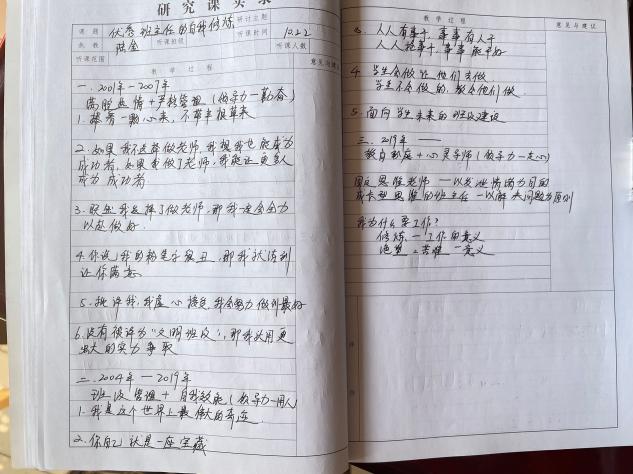 研究课实录
课题 优秀班主任的自我修炼 研讨主题
执教 听课班级 听课时间 10.22
听课范围 听课人数
教学过程 意见与建议
一.2001年—2007年
满腔热情+严格管理(领导力—勤奋)
1.捧着一颗心来,不带半根草来
2.如果我不选择做老师,我想我也能成为
成功者,如果我做了老师,我能让更多人
成为成功者
3.既然我选择了做老师,那我一定会全力
以赴做好.
4.你说我的粉笔字很丑,那我就练到
让你满意.
5.批评我,我虚心接受,我会努力做到最好
6.没有被评为"文明班级",那我就用更
强大的实力争取
二.2004年—2019年
班级管理+自我效能(领导力—用人)
1.我是这个世界上最伟大的奇迹
2.你自己就是一座宝藏
教学过程 意见与建议
3.人人有事干,事事有人干
人人能事干,事事能干好
4.学生会做让他们去做
学生不会做的,教会他们做.
5.面向学生未来的班级建设
三.2019年——
教育制度+心灵导师(领导力—走心)
固定思维老师—以发泄情绪为目的
成长型思维的班主任—以解决问题为原则
我为什么要工作?
修炼—工作的意义
绝望=苦难-意义